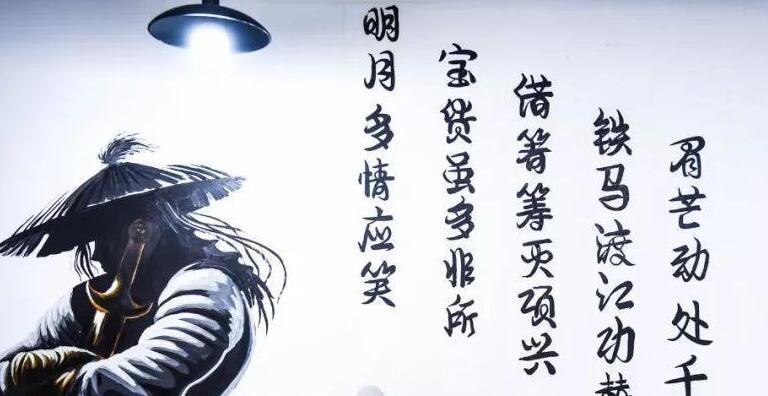 眉芒动处千
铁马渡江功赫
借箸筹灭项兴
宝货虽多非所
明月多情应笑